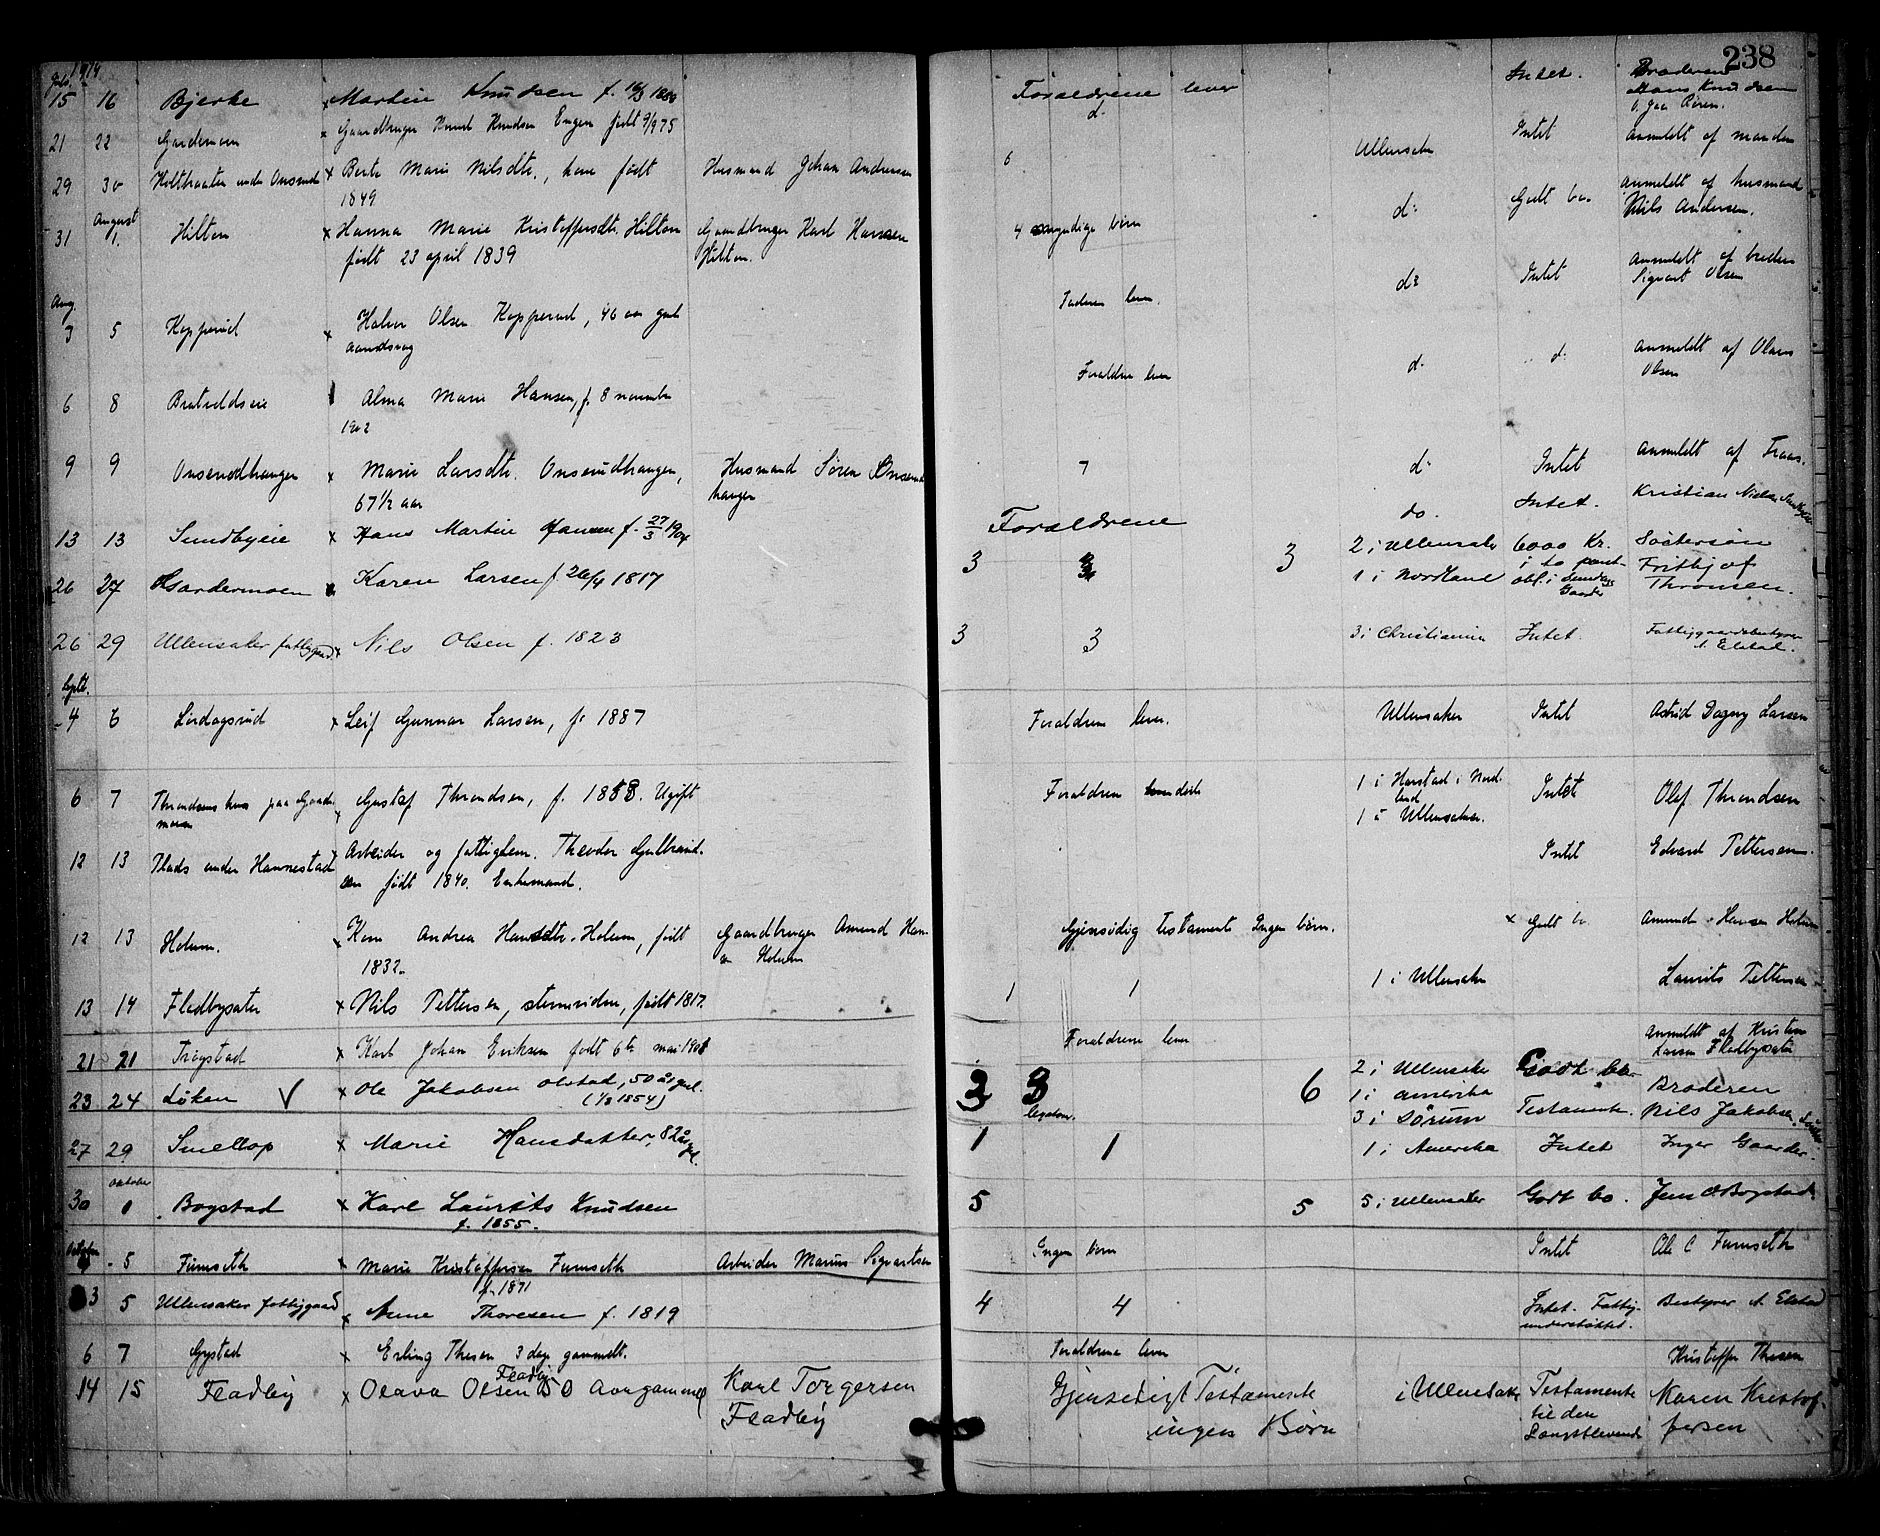 238
1914
15 16 Bjerke Martin Knudsen f. Forældrene lever Intet. Broderen
Hans Knudsen
21 22 Gardemoen Gaardbruger Knut Knudsen Engen født 9/9 75 d. Intet anmeldt af manden
29 30 under Onsrud Berte Marie Nilsdtr., kone født Husmand Johan Andersen 6 Ullensaker
1849
Godt bo anmeldt af husmand
Nils Andersen.
August
31 1. Hilton Hanna Marie Kristoffersdtr. Hilton Gaardbruger Karl Hansen 4 myndige børn d:
født 23 april 1839 Hilton.
Intet anmeldt af
Sigvart Olsen
Aug.
3 5 Kopperud Halvor Olsen Kopperud, 46 aar gml. Faderen lever. d:
aandssvag
d: anmeldt af Olaus
Olsen
6 8 Alma Marie Hansen, f. 8 november Forældrene lever d.
1902
9 9 Onsrudhaugen Marie Larsdtr. Onsrudhaugen, Husmand Søren Onsrud- 7 d: Intet anmeldt af
67½ aar haugen
13 13 Sundbyeie Hans Martin Hansen f. 27/3 1904 Forældrene do. Intet. Kristian
26 27 Gardermoen Karen Larsen f 26/4 1817 3 3 3 2 i Ullensaker 6000 Kr. Søstersøn
1 i Nordland i to pant- Fritjof
obl. i Thronsen.
Gaarder
26 29 Ullensaker fattiggaard Nils Olsen f. 1823 3 3 3 i Christiania Intet. Fattiggaardsbestyrer
A. Elstad.
Septb.
4 6 Lirdagsrud Leif Gunnar Larsen, f. 1887 Forældrene lever. Ullensaker Intet Astrid Dagny Larsen
6 7 Throndsens hus paa Garder- Gustaf Throndsen, f. 1858. Ugift Forældrene døde 1 i Harstad i Nord- Intet Olaf Throndsen
moen land
1 i Ullensaker.
12 13 Plads under Hovnestad Arbeider og fattiglem. Theodor Gulbrand- Intet Edvard Pettersen.
sen født 1840. Enkemand.
12 13 Holum. Kone Andrea Hansdtr. Holum, født Gaardbruger Amund Han- Gjensidig Testamente Ingen børn. Godt bo Amund Hansen Holum
1832. sen Holum
13 14 Fladbysæter Nils Pettersen, født 1817. 1 1 1 i Ullensaker Laurits Pettersen
21 21 Trøgstad Karl Johan Eriksen født 6te mai 1908 Forældrene lever Anmeldt af Kristian
Larsen Fladbysæter
23 24 Løken V Ole Jakobsen Olstad, 50 år gml. 3 3 6 2 i Ullensaker Godt bo. Broderen
(1/3 1854) 1 i Amerika Nils Jakobsen
3 i Sørum Testamente.
27 29 Smellop Marie Hansdatter, 82 år gl. 1 1 1 i Amerika Intet Inger Gaarder.
oktober
30 1 Bogstad Karl Laurits Knudsen 5 5 5 i Ullensaker Godt bo. Jens O Bogstad
f. 1855.
5 Furuseth Marie Kristoffersen Furuseth Arbeider Marius Sigvartsen Ingen børn Intet Ole C Furuseth
f. 1871
3 5 Ullensaker fattiggaard Anne Thoresen f. 1819 4 4 Intet. Fattig- Bestyrer A. Elstad
understøttet.
6 7 Gystad Erling Thesen 3 dage gammelt. Forældrene lever Kristoffer Thesen
14 15 Fladby Olava Olsen Fladby 50 Aar gammel Karl Torgersen Gjensedigt Testamente i Ullensaker Testamente Maren Kristof-
Fladby ingen Børn til den fersen
Længstlevende